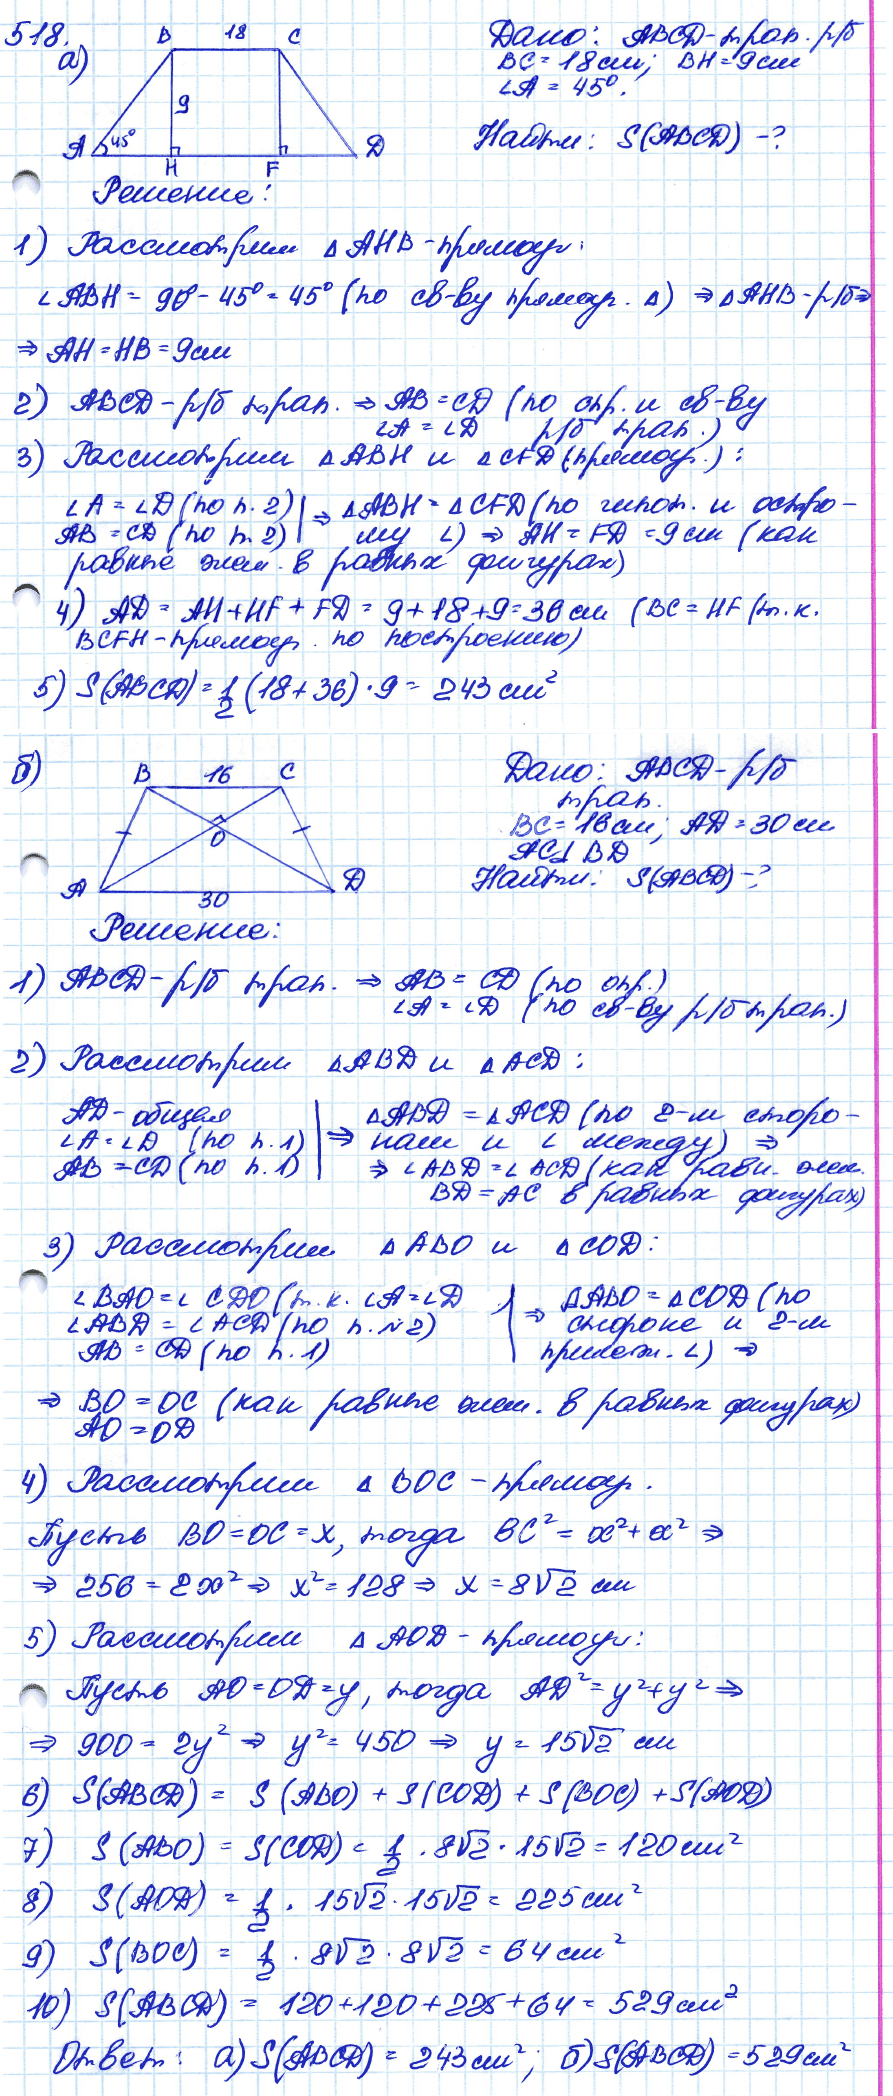 518.
а)
B 18 C
9
A 45° H F D
Дано: ABCD-трап. р/б
BC = 18 см; BH = 9 см
∠A = 45°.
Найти: S(ABCD) -?
Решение:
1) Рассмотрим ΔAHB-прямоуг.:
∠ABH = 90° - 45° = 45° (по св-ву прямоуг. Δ) ⇒ ΔAHB-р/б ⇒
⇒ AH = HB = 9 см
2) ABCD-р/б трап. ⇒ AB = CD (по опр. и св-ву
∠A = ∠D р/б трап.)
3) Рассмотрим ΔABH и ΔCFD (прямоуг.):
∠A = ∠D (по п. 2) | ⇒ ΔABH = ΔCFD (по гипот. и остро-
AB = CD (по п. 2) | му ∠) ⇒ AH = FD = 9 см (как
равные элем. в равных фигурах)
4) AD = AH + HF + FD = 9 + 18 + 9 = 36 см (BC = HF (т.к.
BCFH-прямоуг. по построению)
5) S(ABCD) = 1/2 (18 + 36) · 9 = 243 см²
б)
B 16 C
O
A 30 D
Дано: ABCD-р/б
трап.
BC = 16 см; AD = 30 см
AC⊥BD
Найти: S(ABCD) -?
Решение:
1) ABCD-р/б трап. ⇒ AB = CD (по опр.)
∠A = ∠D (по св-ву р/б трап.)
2) Рассмотрим ΔABD и ΔACD:
AD-общая | ΔABD = ΔACD (по 2-м сторо-
∠A = ∠D (по п. 1) | ⇒ нам и ∠ между) ⇒
AB = CD (по п. 1) | ⇒ ∠ABD = ∠ACD (как равн. элем.
BD = AC в равных фигурах)
3) Рассмотрим ΔABO и ΔCOD:
∠BAO = ∠CDO (т.к. ∠A = ∠D | ⇒ ΔABO = ΔCOD (по
∠ABD = ∠ACD (по п. №2) | стороне и 2-м
AB = CD (по п. 1) | прилеж. ∠) ⇒
⇒ BO = OC (как равные элем. в равных фигурах)
AO = OD
4) Рассмотрим Δ BOC - прямоуг.
Пусть BO = OC = x, тогда BC² = x² + x² ⇒
⇒ 256 = 2x² ⇒ x² = 128 ⇒ x = 8√2 см
5) Рассмотрим Δ AOD - прямоуг.:
Пусть AO = OD = y, тогда AD² = y² + y² ⇒
⇒ 900 = 2y² ⇒ y² = 450 ⇒ y = 15√2 см
6) S(ABCD) = S(ABO) + S(COD) + S(BOC) + S(AOD)
7) S(ABO) = S(COD) = 1/2 · 8√2 · 15√2 = 120 см²
8) S(AOD) = 1/2 · 15√2 · 15√2 = 225 см²
9) S(BOC) = 1/2 · 8√2 · 8√2 = 64 см²
10) S(ABCD) = 120 + 120 + 225 + 64 = 529 см²
Ответ: а) S(ABCD) = 243 см²; б) S(ABCD) = 529 см²